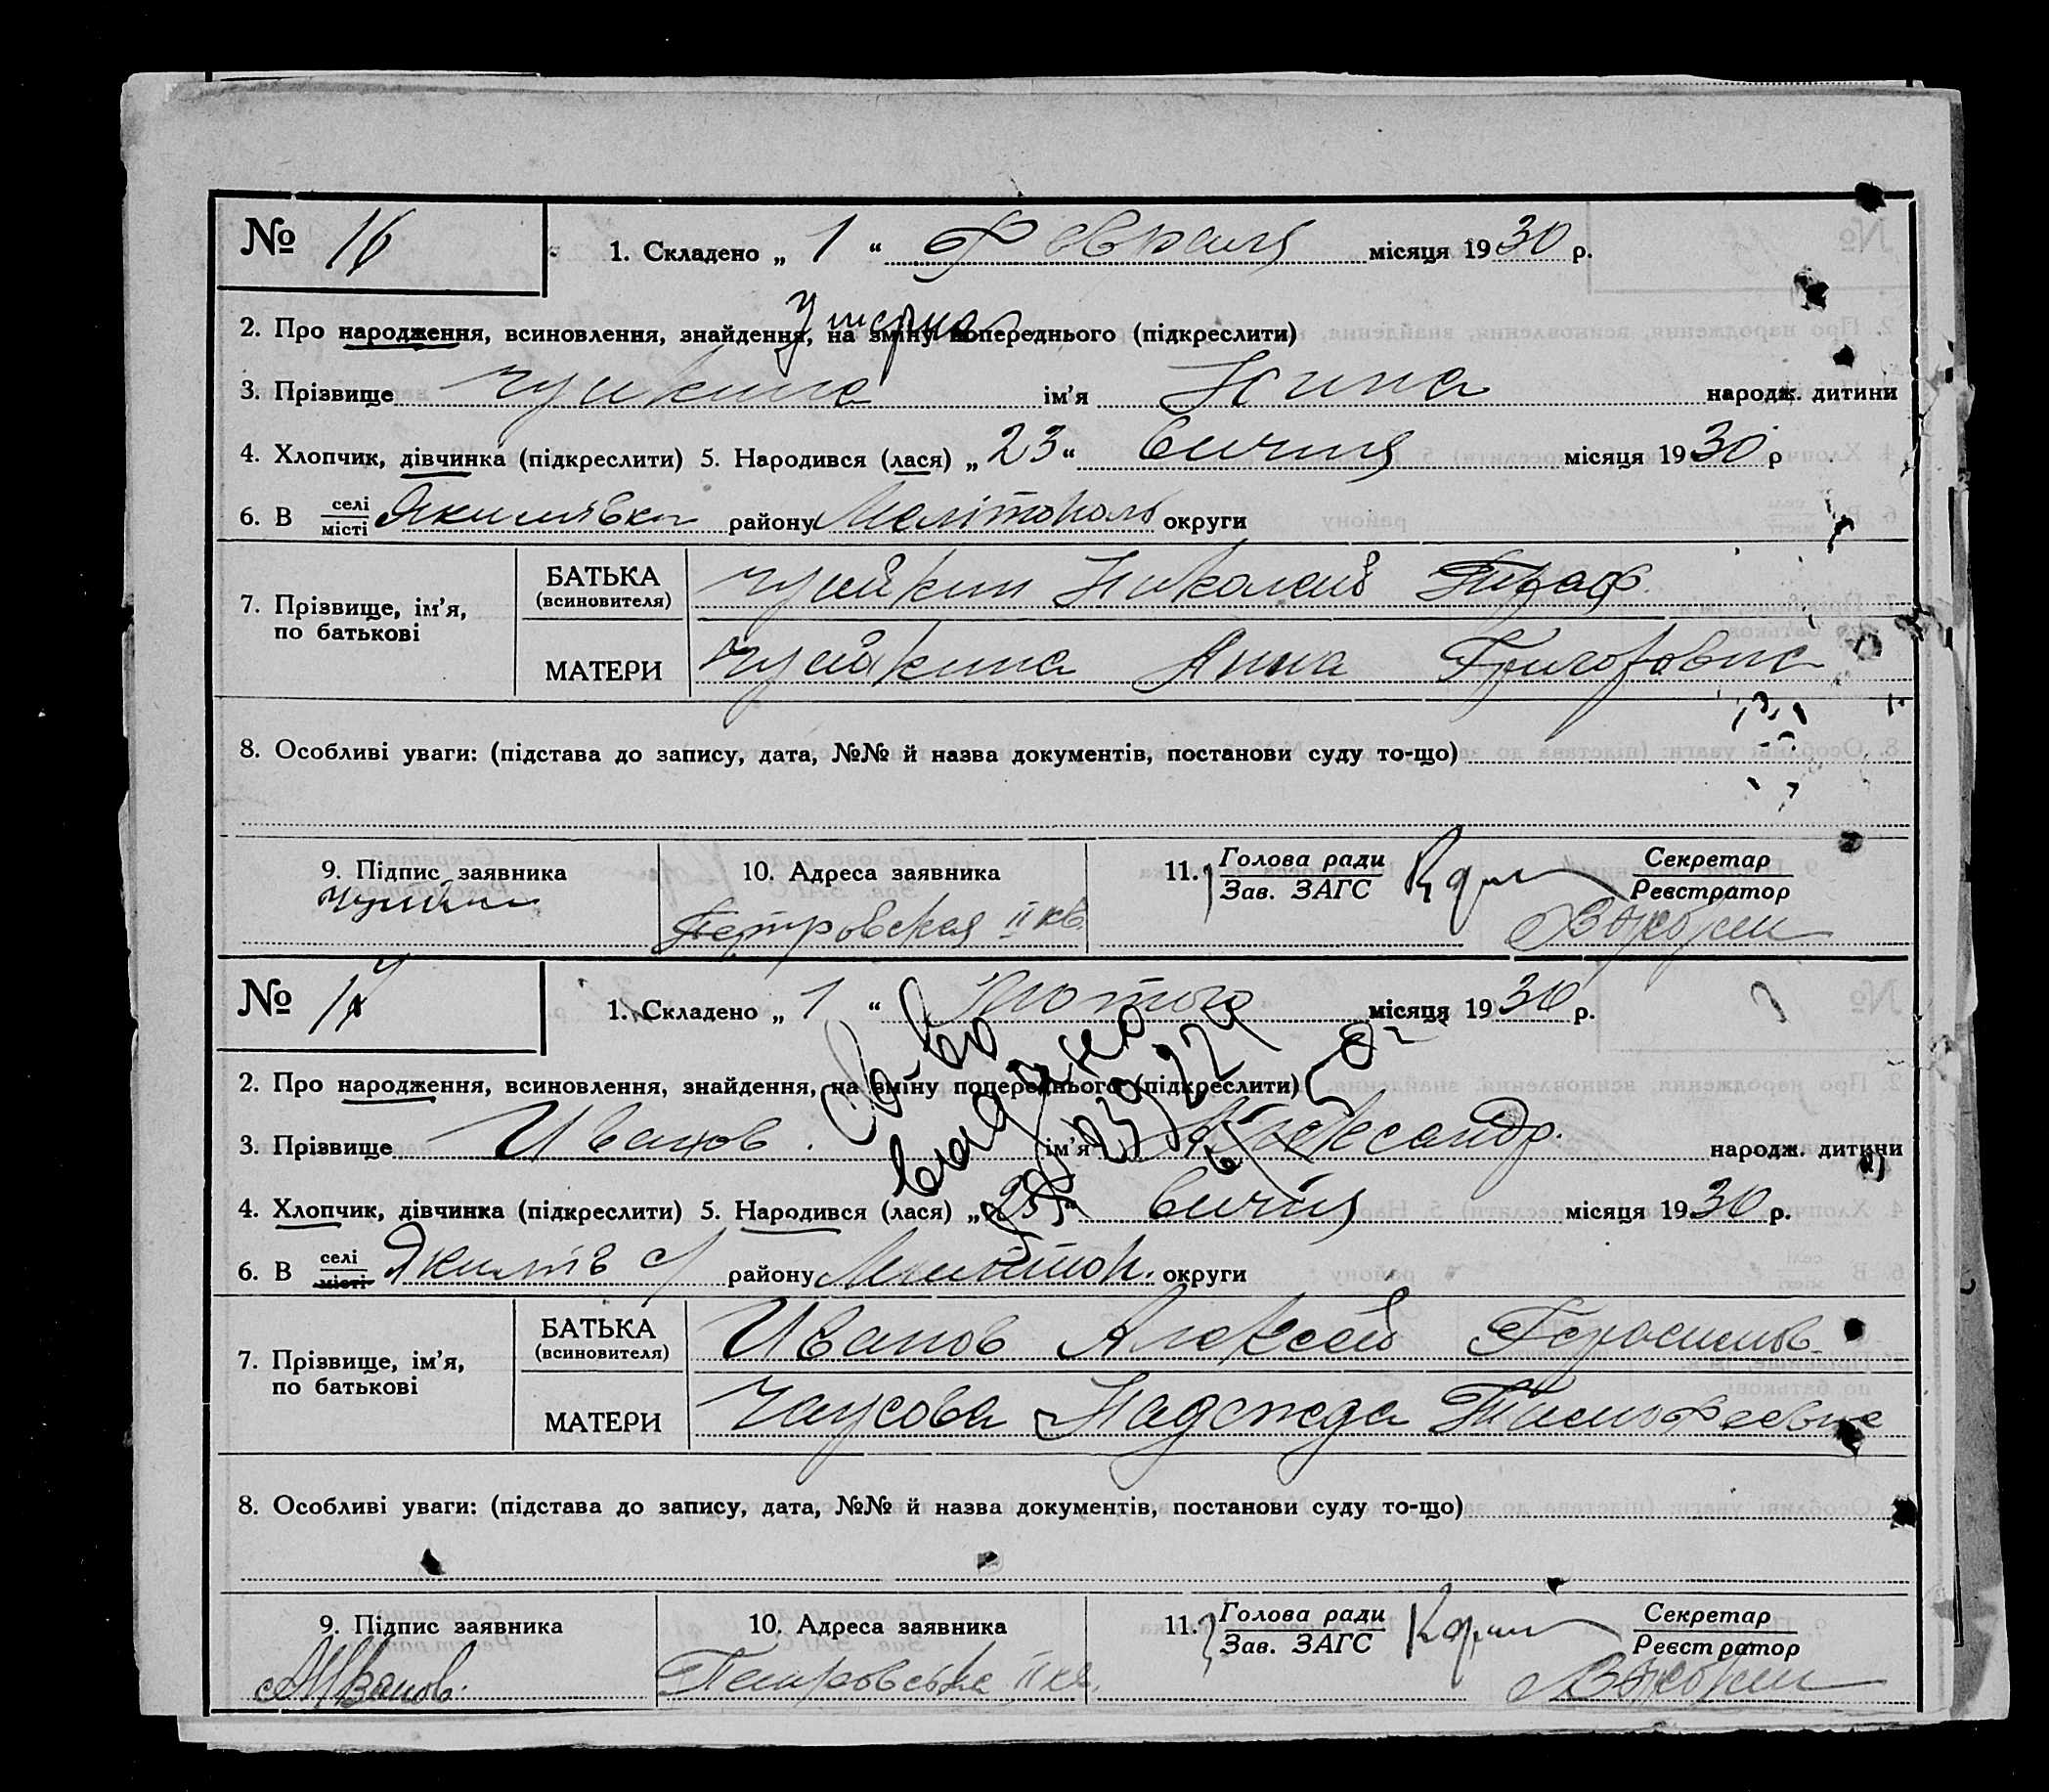 № 16
1. Складено „ 1 “ Февраля місяця 1930 р.
Умерла
2. Про народження, всиновлення, знайдення, на зміну попереднього (підкреслити)
3. Прізвище ім'я Нина народж. дитини
4. Хлопчик, дівчинка (підкреслити) 5. Народився (лася) „ 23 “ Січня місяця 1930 р
6. В селі місті Якимівка району Мелітополь округи
7. Прізвище, ім'я, по батькові
БАТЬКА (всиновителя) Николай
МАТЕРИ Анна Григоровна
8. Особливі уваги: (підстава до запису, дата, №№ й назва документів, постанови суду то-що)
9. Підпис заявника
10. Адреса заявника
Петровская II кв.
11. Голова ради Зав. ЗАГС
Секретар Реєстратор
№ 17
1. Складено „ 1 “ Лютого місяця 1930 р.
2. Про народження, всиновлення, знайдення, на зміну попереднього (підкреслити)
3. Прізвище Иванов. ім'я Александр. народж. дитини
4. Хлопчик, дівчинка (підкреслити) 5. Народився (лася) „ 25 “ Січня місяця 1930 р.
6. В селі місті Якимів району Мелітоп. округи
Св во выдано
7. Прізвище, ім'я, по батькові
БАТЬКА (всиновителя) Иванов Алексей Герасимов.
МАТЕРИ Чаусова Надежда Тимофеевна
8. Особливі уваги: (підстава до запису, дата, №№ й назва документів, постанови суду то-що)
9. Підпис заявника
АИванов.
10. Адреса заявника
Петровська II кв.
11. Голова ради Зав. ЗАГС
Секретар Реєстратор